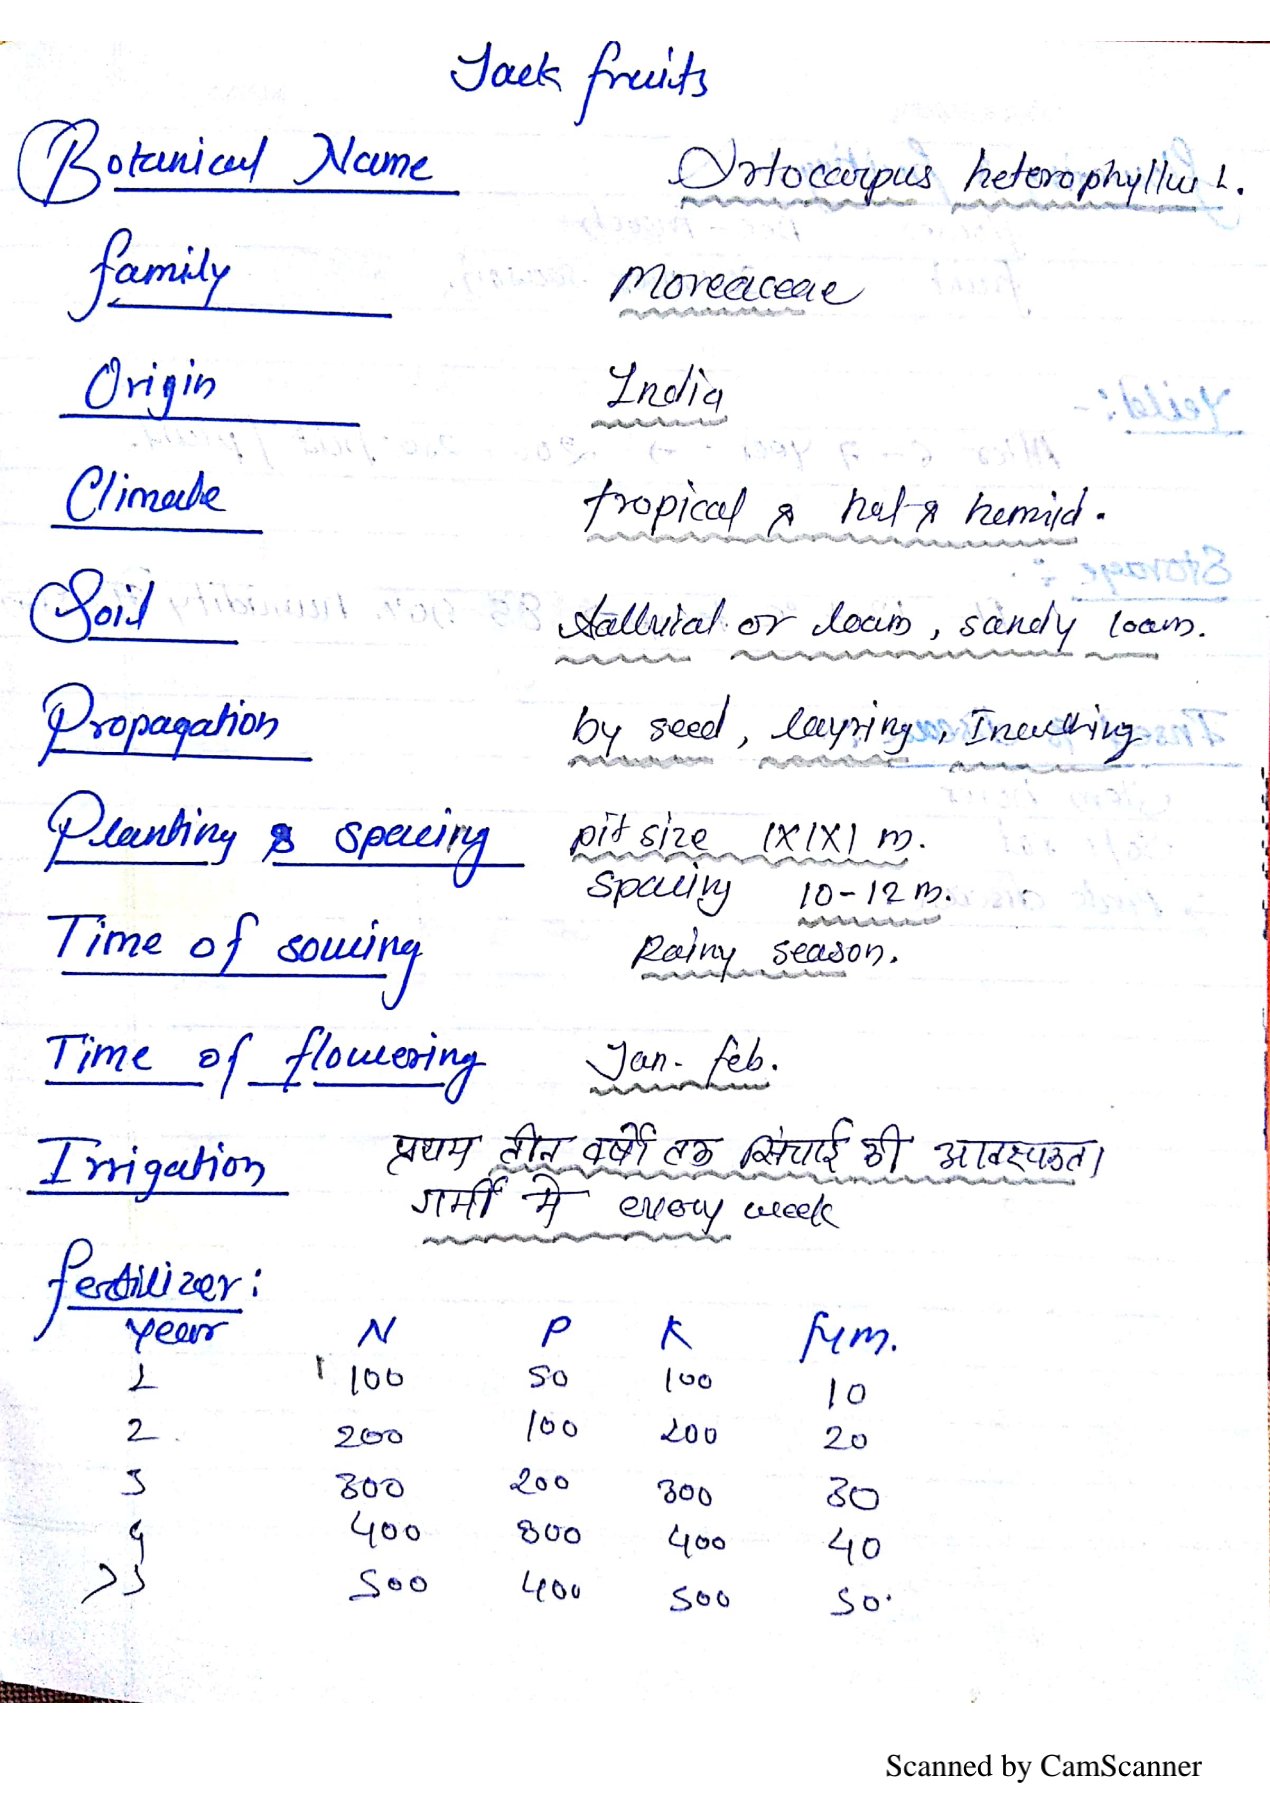 Jack fruits
Botanical Name Ortocarpus heterophyllus L.
family Moreaceae
Origin India
Climate tropical & hot & hemiid.
Soil Aalluial or loam, sandy loam.
Propagation by seed, layring, Inarching
Planting & spacing pit size 1X1X1 m.
spacing 10-12 m.
Time of sowing Rainy season.
Time of flowering Jan- feb.
Irrigation प्रथम तीन वर्षो तक सिंचाई की आवश्यकता।
गर्मी मे every week
fertilizer:
Year N P K fym.
1 100 50 100 10
2 200 100 200 20
3 300 200 300 30
4 400 300 400 40
>5 500 400 500 50.
Scanned by CamScanner